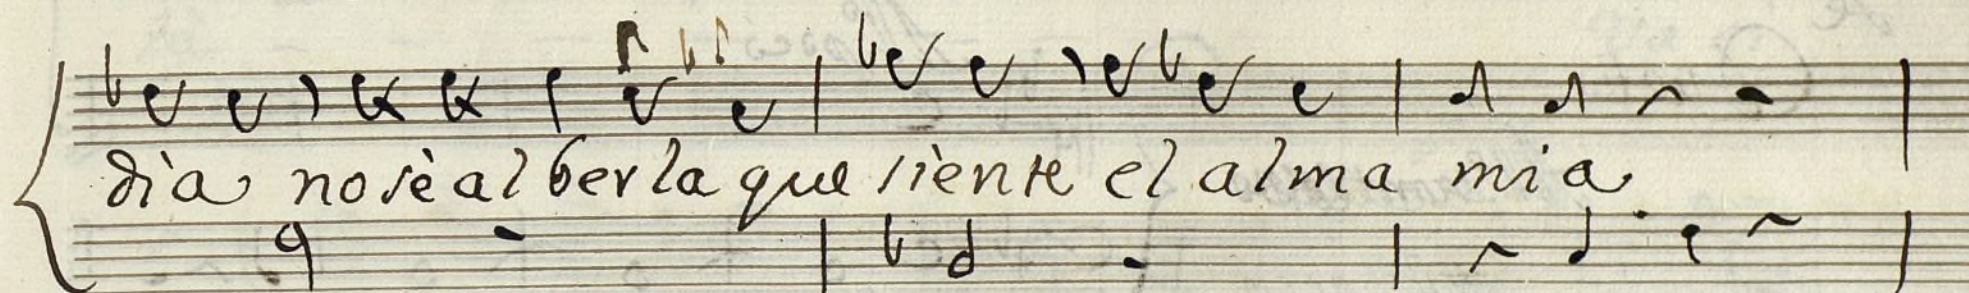 dìa no sè al berla que siènte el alma mia